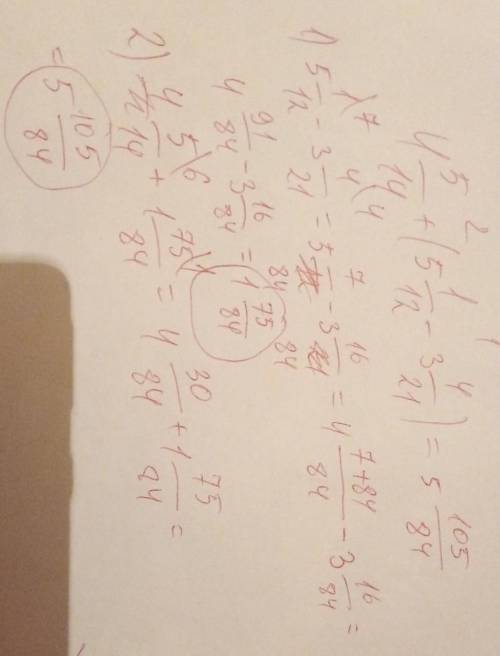 4 5/14 + (5 1/12 - 3 4/21) = 5 105/84
1) 5 1/12 - 3 4/21 = 5 7/84 - 3 16/84 = 4 7+84/84 - 3 16/84 =
4 91/84 - 3 16/84 = 1 75/84
2) 4 5/14 + 1 75/84 = 4 30/84 + 1 75/84 =
= 5 105/84